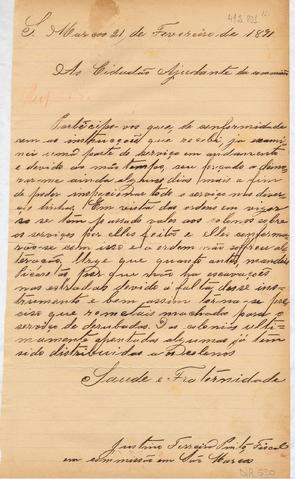 S. Marcos 21 de Fevereiro de 1891
Ao Cidadão Ajudante da commissão
Participo-vos que, de conformidade
com as instrucções que recebi, já examinei
uma parte do serviço em andamento
e devido ao máo tempo, sou forçado a demorar-me
ainda alguns dias mais a fim
de poder inspeccionar todo o serviço nas diversas
linhas. Em vista das ordens em vigor
se tem passado vales aos colonos sobre
os serviços por elles feito e elles
com isso e a ordem não soffreo alteração.
Urge que quanto antes mandeis
por que não ha escavações
nas estradas devido á falta desse instrumento
e bem assim torna-se preciso
que remetais machado para o
serviço de derrubadas. Das colonias ultimamente
apontadas algumas já tem
sido distribuidas a colonos
Saude e Fraternidade
Justino Ferreira Fiscal
em commissão em São Marcos
DIR 530